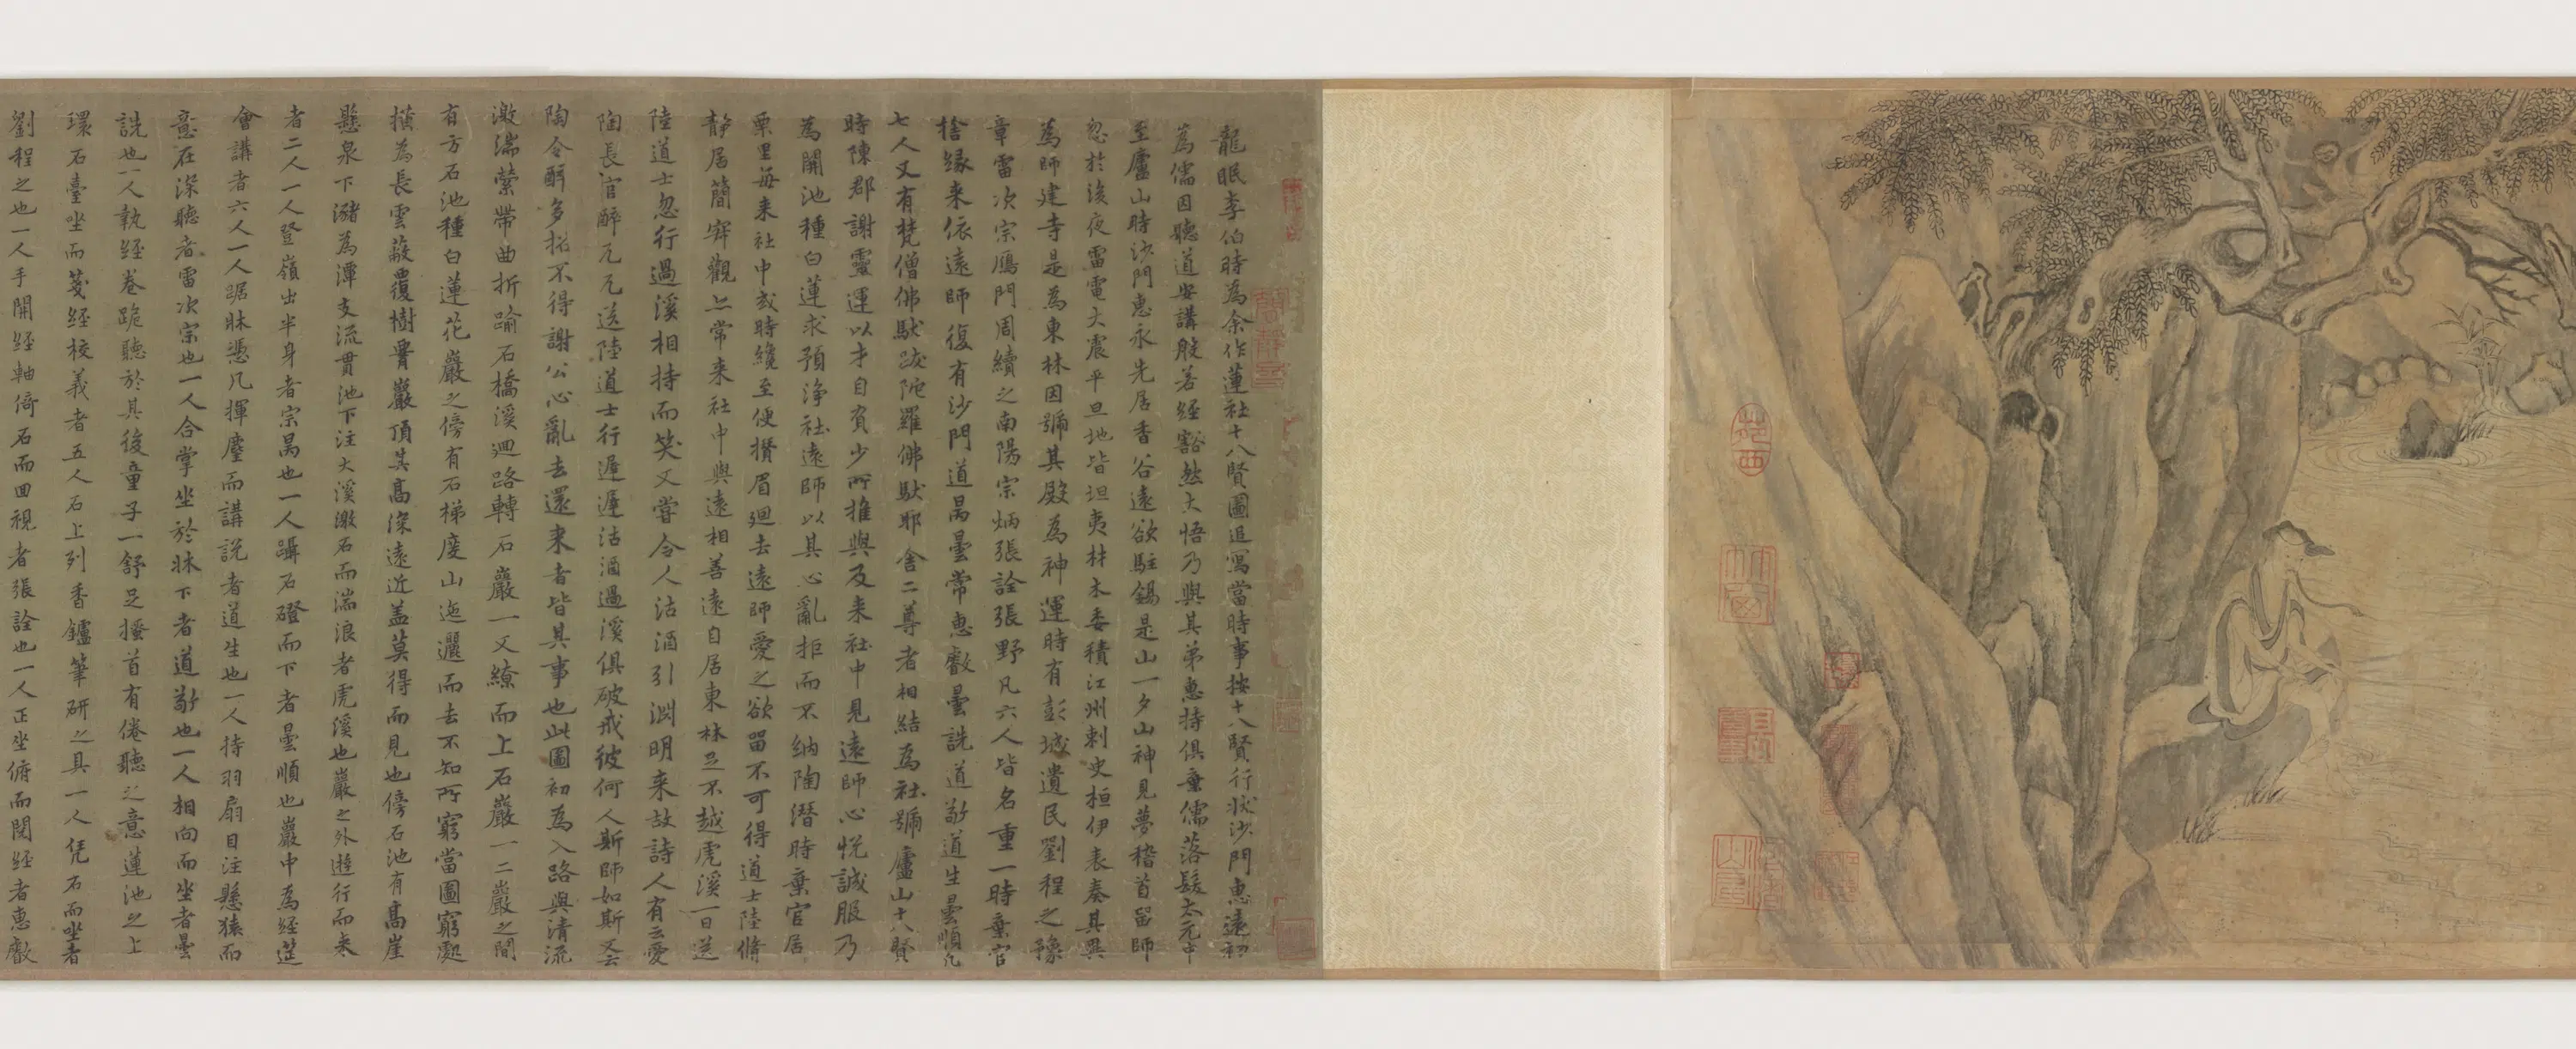 龍眠李伯時為余作蓮社十八賢圖追寫當時事按十八賢行狀沙門惠遠初
為儒因聽道安講般若經豁然大悟乃與其弟惠持俱棄儒落髮太元中
至廬山時沙門惠永先居香谷遠欲駐錫是山一夕山神見夢稽首留師
忽於後夜雷電大震平旦地皆坦夷材木委積江州刺史桓伊表奏其異
為師建寺是為東林因號其殿為神運時有彭城遺民劉程之豫
章雷次宗鴈門周續之南陽宗炳張詮張野凡六人皆名重一時棄官
捨緣来依遠師復有沙門道昺曇常惠叡曇詵道敬道生曇順凡
七人又有梵僧佛馱跋陀羅佛馱耶舍二尊者相結為社號廬山十八賢
時陳郡謝靈運以才自負少所推與及来社中見遠師心悅誠服乃
為開池種白蓮求預淨社遠師以其心亂拒而不納陶潛時棄官居
栗里每来社中或時纔至便攢眉廻去遠師愛之欲留不可得道士陸脩
靜居簡寂觀亦常来社中與遠相善遠自居東林足不越虎溪一日送
陸道士忽行過溪相持而笑又嘗令人沽酒引淵明来故詩人有云愛
陶長官醉兀兀送陸道士行遲遲沽酒過溪俱破戒彼何人斯師如斯又云
陶令醉多招不得謝公心亂去還来者皆其事也此圖初為入路與清流
激湍縈帶曲折踰石橋溪廻路轉石巖一又繚而上石巖一二巖之間
有方石池種白蓮花巖之傍有石梯度山迤邐而去不知所窮當圖窮處
橫為長雲蔽覆樹腎巖頂其高深遠近盖莫得而見也傍石池有高崖
懸泉下瀦為潭支流貫池下注大溪激石而湍浪者虎溪也巖之外遊行而来
者二人一人登嶺出半身者宗昺也一人躡石磴而下者曇順也巖中為經筵
會講者六人一人踞牀憑几揮麈而講說者道生也一人持羽扇目注懸猿而
意在深聽者雷次宗也一人合掌坐於牀下者道敬也一人相向而坐者曇
詵也一人執經卷跪聽於其後童子一舒足搔首有倦聽之意蓮池之上
環石臺坐而箋經校義者五人石上列香鑪筆研之具一人凭石而坐者
劉程之也一人手開經軸倚石而回視者張詮也一人正坐俯而閱經者惠叡